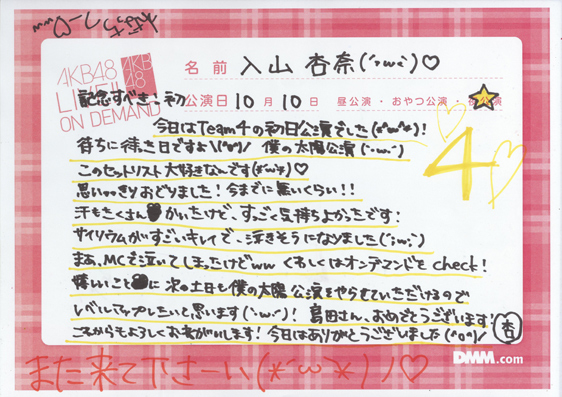 AKB48
LIVE!!
ON DEMAND
AKB
48
名前 入山 杏奈(´・ω・`)♡
記念すべき、初
公演日 10月10日 ・昼公演・おやつ公演・夜公演
今日はTeam4の初日公演でした(*^ω^*)!
待ちに待った日ですよ\(^o^)/ 僕の太陽公演(´・ω・`)
このセットリスト大好きなんです(*´ω`*)♡
思いっきりおどりました!今までに無いくらい!!
汗もたくさんかいたけど、すっごく気持ちよかったです!
サイリウムがすごいキレイで、泣きそうになりました(´;ω;`)
まあ、MCで泣いてしまったけどww くわしくはオンデマンドを check!
嬉しいことに次の土日も僕の太陽公演をやらせていただけるので
レベルアップしたいと思います(`・ω・´)! 島田さん、おめでとうございます!
これからもよろしくお願いします!今日はありがとうございました(^o^)/
杏
4
また来て下さーい(*´3`*)/♡
DMM.com